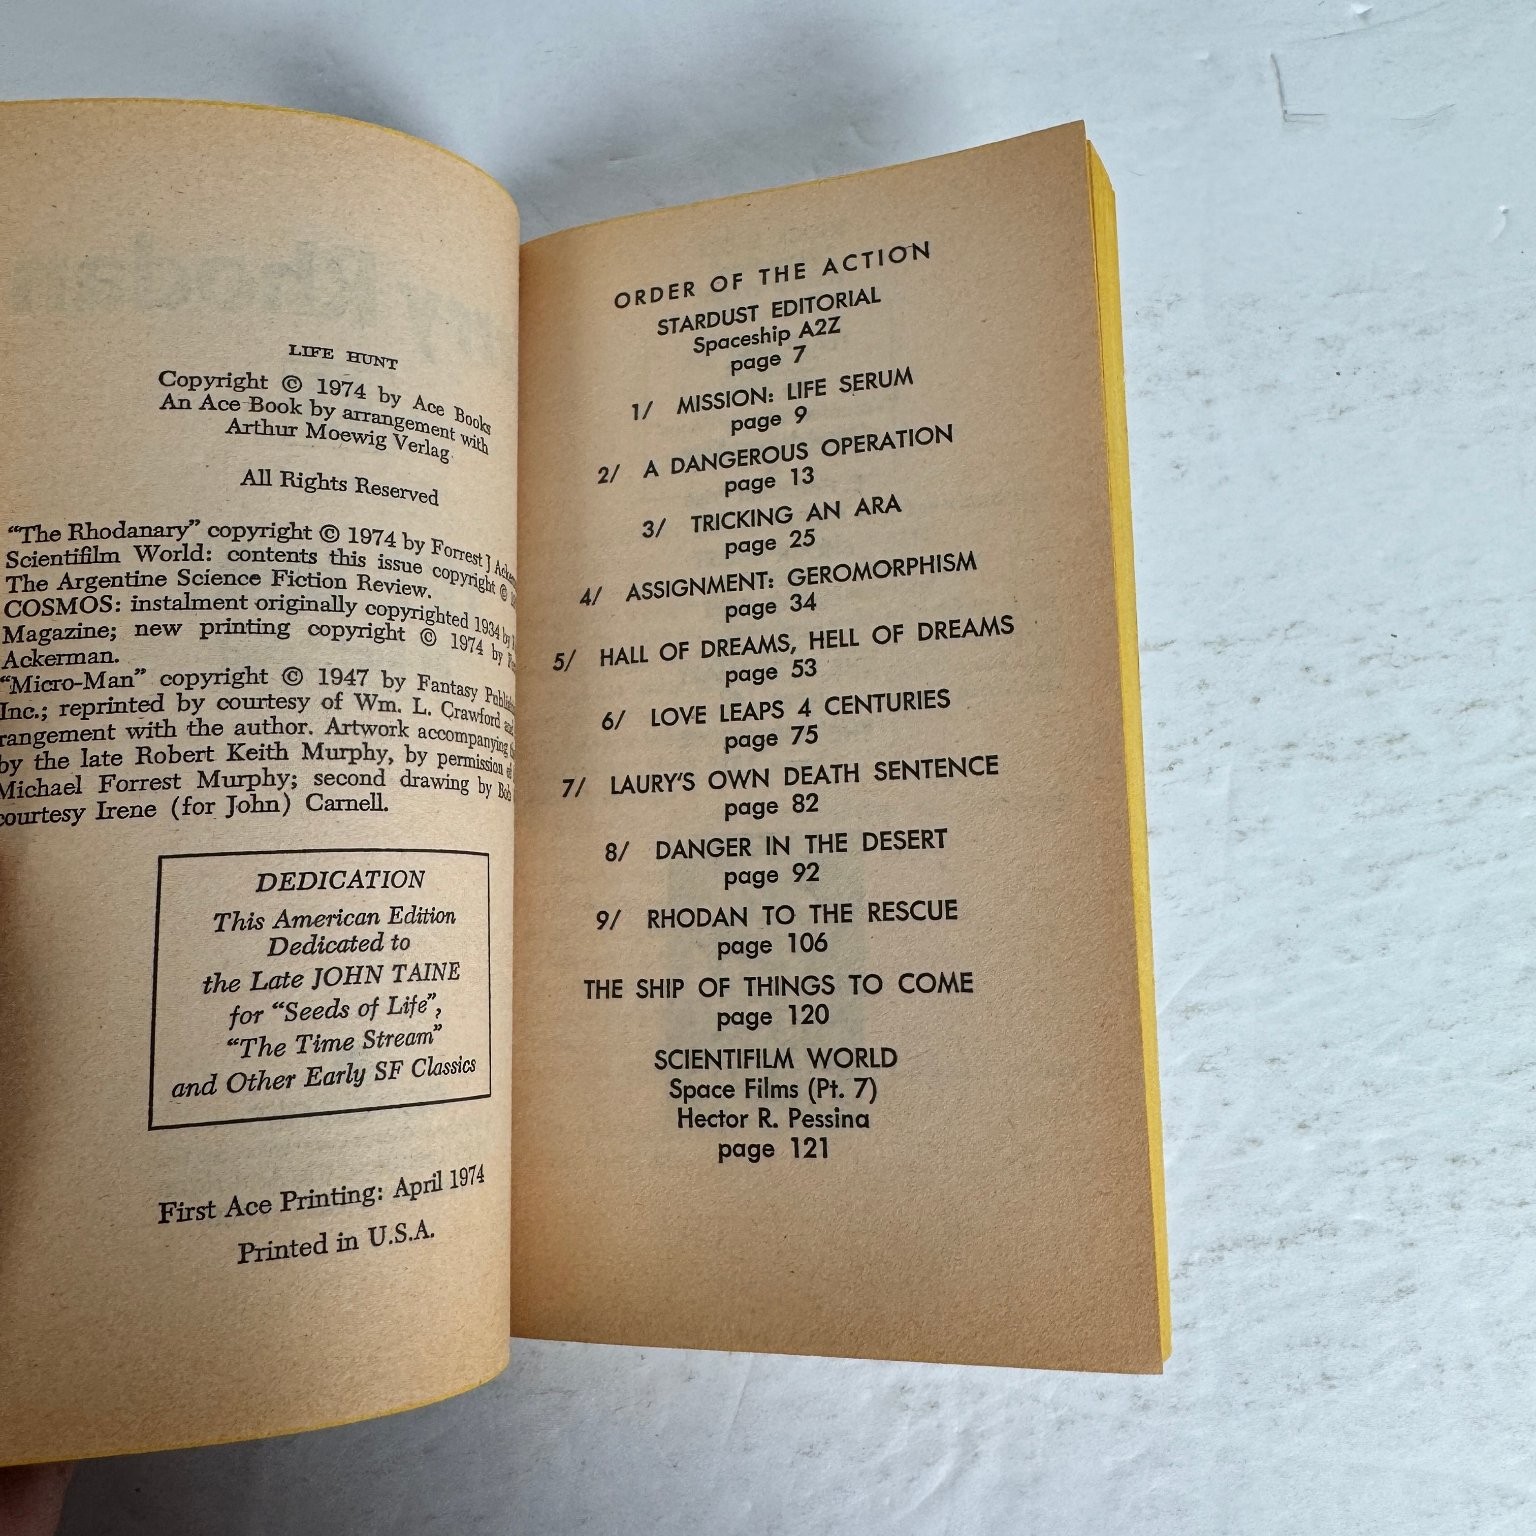 LIFE HUNT
Copyright © 1974 by Ace Books
An Ace Book by arrangement with
Arthur Moewig Verlag
All Rights Reserved
“The Rhodanary” copyright © 1974 by Forrest J
Scientifilm World: contents this issue copyright ©
The Argentine Science Fiction Review.
COSMOS: instalment originally copyrighted 1934 by
Magazine; new printing copyright © 1974 by
Ackerman.
“Micro-Man” copyright © 1947 by Fantasy
Inc.; reprinted by courtesy of Wm. L. Crawford and
rangement with the author. Artwork accompanying
by the late Robert Keith Murphy, by permission of
Michael Forrest Murphy; second drawing by Bob
courtesy Irene (for John) Carnell.
DEDICATION
This American Edition
Dedicated to
the Late JOHN TAINE
for “Seeds of Life”,
“The Time Stream”
and Other Early SF Classics
First Ace Printing: April 1974
Printed in U.S.A.
ORDER OF THE ACTION
STARDUST EDITORIAL
Spaceship A2Z
page 7
1/ MISSION: LIFE SERUM
page 9
2/ A DANGEROUS OPERATION
page 13
3/ TRICKING AN ARA
page 25
4/ ASSIGNMENT: GEROMORPHISM
page 34
5/ HALL OF DREAMS, HELL OF DREAMS
page 53
6/ LOVE LEAPS 4 CENTURIES
page 75
7/ LAURY’S OWN DEATH SENTENCE
page 82
8/ DANGER IN THE DESERT
page 92
9/ RHODAN TO THE RESCUE
page 106
THE SHIP OF THINGS TO COME
page 120
SCIENTIFILM WORLD
Space Films (Pt. 7)
Hector R. Pessina
page 121